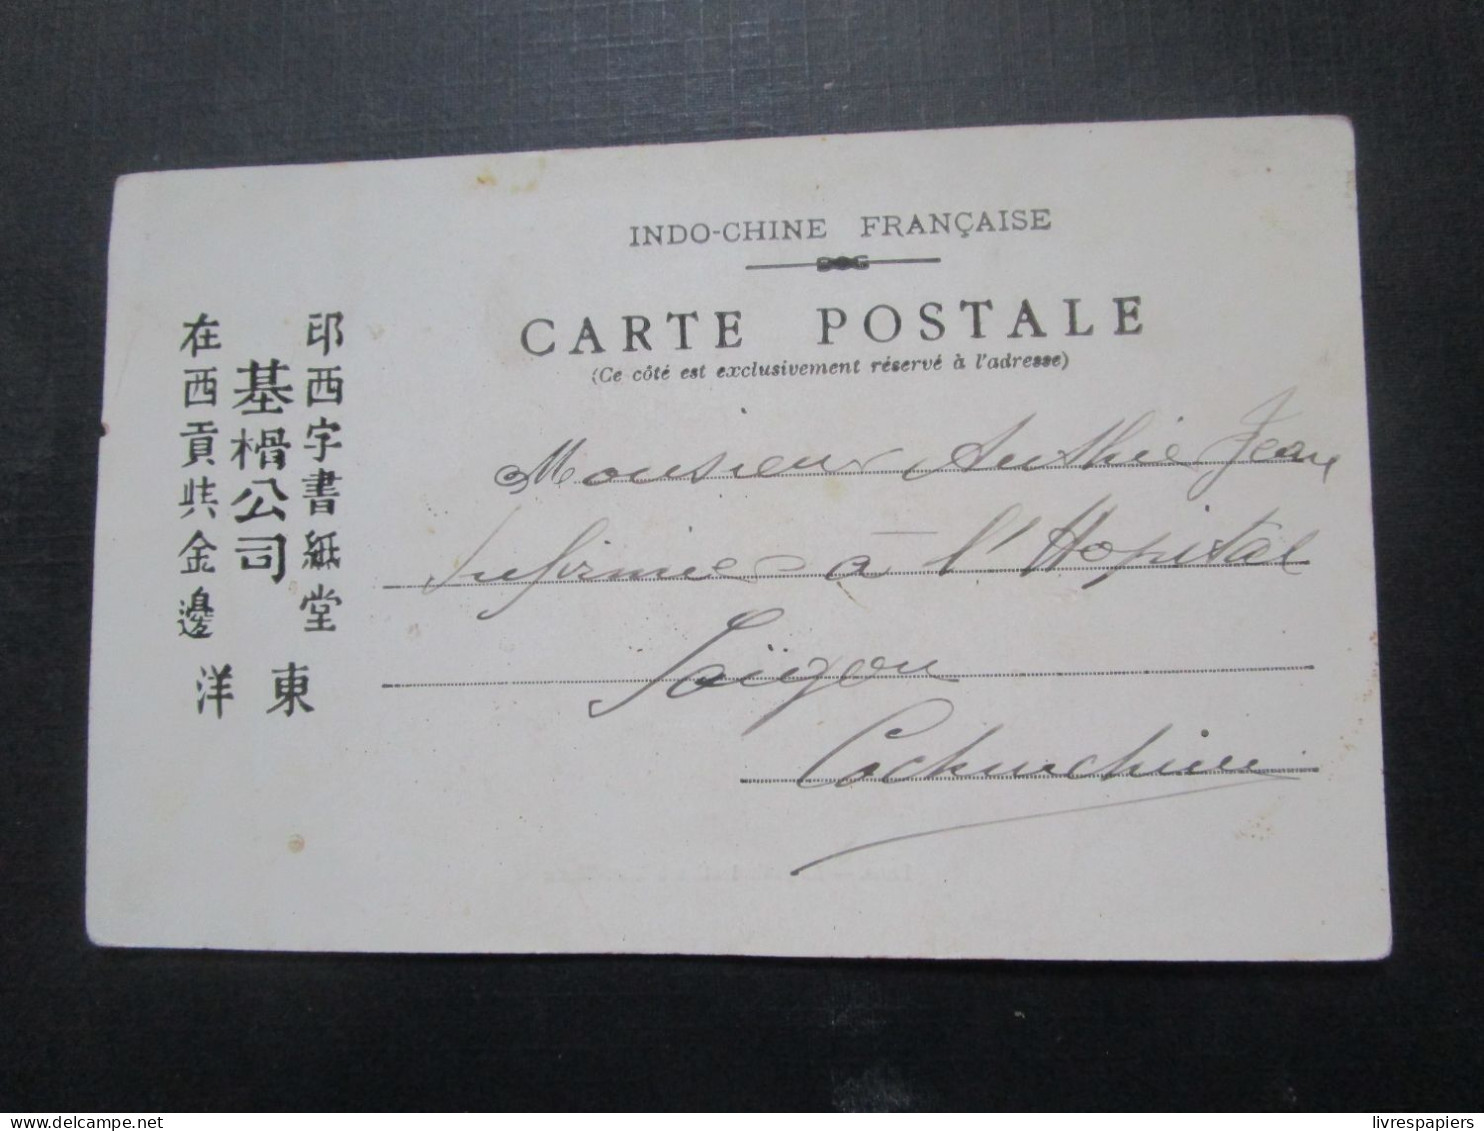 INDO-CHINE FRANÇAISE
CARTE POSTALE
(Ce côté est exclusivement réservé à l'adresse)
Monsieur Authier Jean
Infirmier à l'Hopital
Saïgon
Cochinchine
印西字書紙堂
基榾公司
在西貢㒷金邊
東洋
livrespapiers